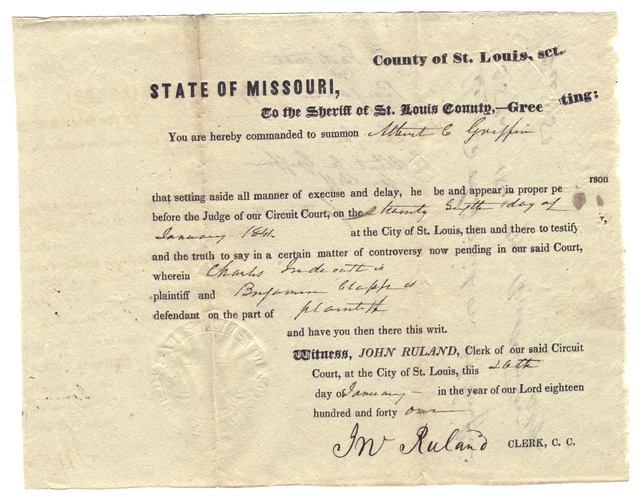 County of St. Louis, sct.
STATE OF MISSOURI,
To the Sheriff of St. Louis County,—Gree ting:
You are hereby commanded to summon Albert C Griffin
that setting aside all manner of execuse and delay, he be and appear in proper pe rson
before the Judge of our Circuit Court, on the day of
January 1841 at the City of St. Louis, then and there to testify
and the truth to say in a certain matter of controversy now pending in our said Court,
wherein Charles is
plaintiff and Benjamin Clapp is
defendant on the part of plaintiff
and have you then there this writ.
Witness, JOHN RULAND, Clerk of our said Circuit
Court, at the City of St. Louis, this 26th
day of January in the year of our Lord eighteen
hundred and forty one
Jno Ruland CLERK, C. C.